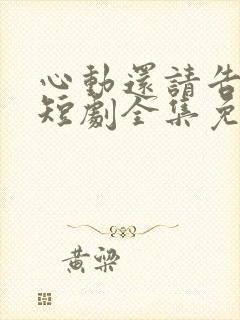 心動還請告
短劇全集免
黃梁